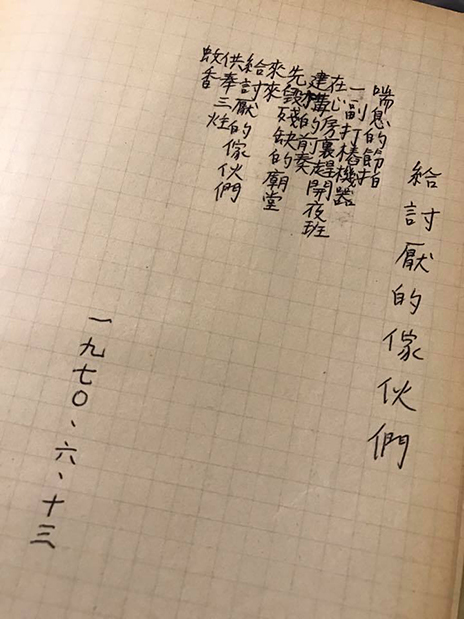 給討厭的傢伙們
喘息的節拍
一副打樁機器
在心房裏趕開夜班
建構的前奏
先毀殘缺的廟堂
來來
給討厭的傢伙們
供奉三炷
蚊香
一九七〇、六、十三